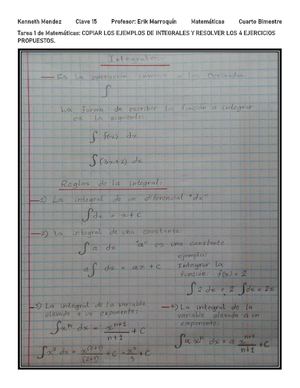 Kenneth Mendez Clave 15 Profesor: Erik Marroquín Matemáticas Cuarto Bimestre
Tarea 1 de Matemáticas: COPIAR LOS EJEMPLOS DE INTEGRALES Y RESOLVER LOS 4 EJERCICIOS
PROPUESTOS.
Integrales
Es la operación a las Derivadas
∫
La forma de escribir la función a integrar
es la siguiente:
∫ f(x) dx
∫ (3x+2) dx
Reglas de la integral:
1) La integral de un diferencial "dx"
∫ dx = x + C
2) La integral de una constante
∫ a dx "a" es una constante
ejemplo:
a∫ dx = ax + C Integrar la
función: f(x) = 2
∫ 2 dx = 2 ∫ dx = 2x
3) La integral de la variable
elevada a un exponente:
∫ xⁿ dx = x^(n+1)/(n+1) + C
∫ x² dx = x^(2+1)/(2+1) + C = x³/3
4) La integral de la
variable elevada a un
exponente:
∫ a xⁿ dx = a x^(n+1)/(n+1) + C